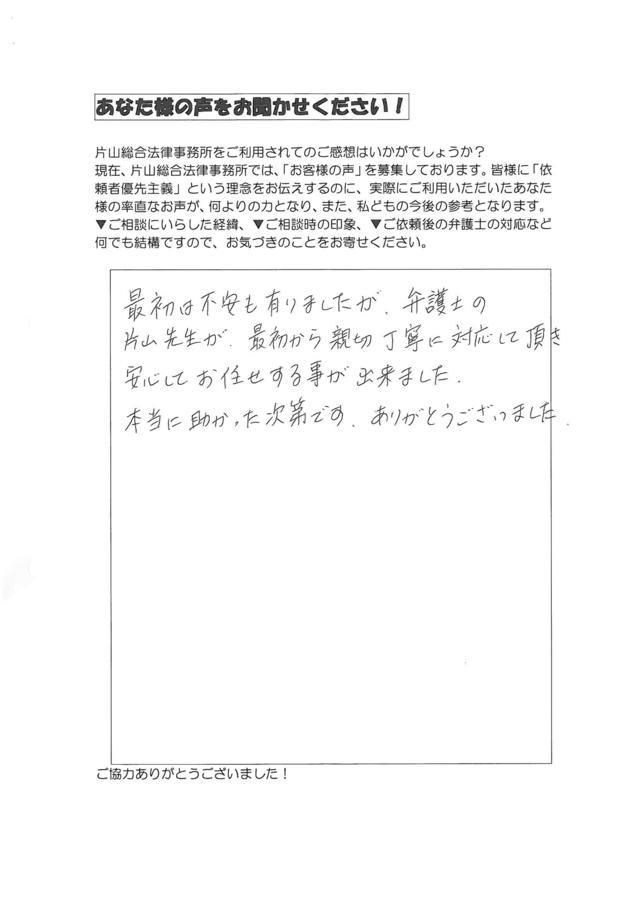 あなた様の声をお聞かせください！
片山総合法律事務所をご利用されてのご感想はいかがでしょうか？
現在、片山総合法律事務所では、「お客様の声」を募集しております。皆様に「依
頼者優先主義」という理念をお伝えするのに、実際にご利用いただいたあなた
様の率直なお声が、何よりの力となり、また、私どもの今後の参考となります。
▼ご相談にいらした経緯、▼ご相談時の印象、▼ご依頼後の弁護士の対応など
何でも結構ですので、お気づきのことをお寄せください。
最初は不安も有りましたが、弁護士の
片山先生が、最初から親切丁寧に対応して頂き
安心してお任せする事が出来ました．
本当に助かった次第です．ありがとうございました．
ご協力ありがとうございました！